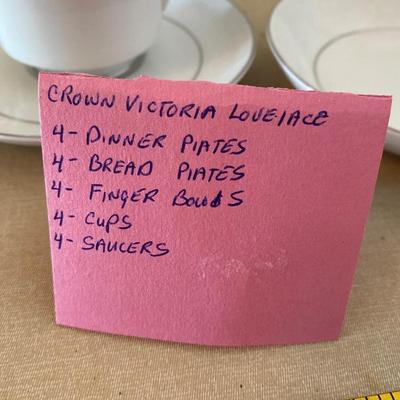 CROWN VICTORIA LOVELACE
4- DINNER PLATES
4- BREAD PLATES
4- FINGER BOWLS
4- CUPS
4- SAUCERS